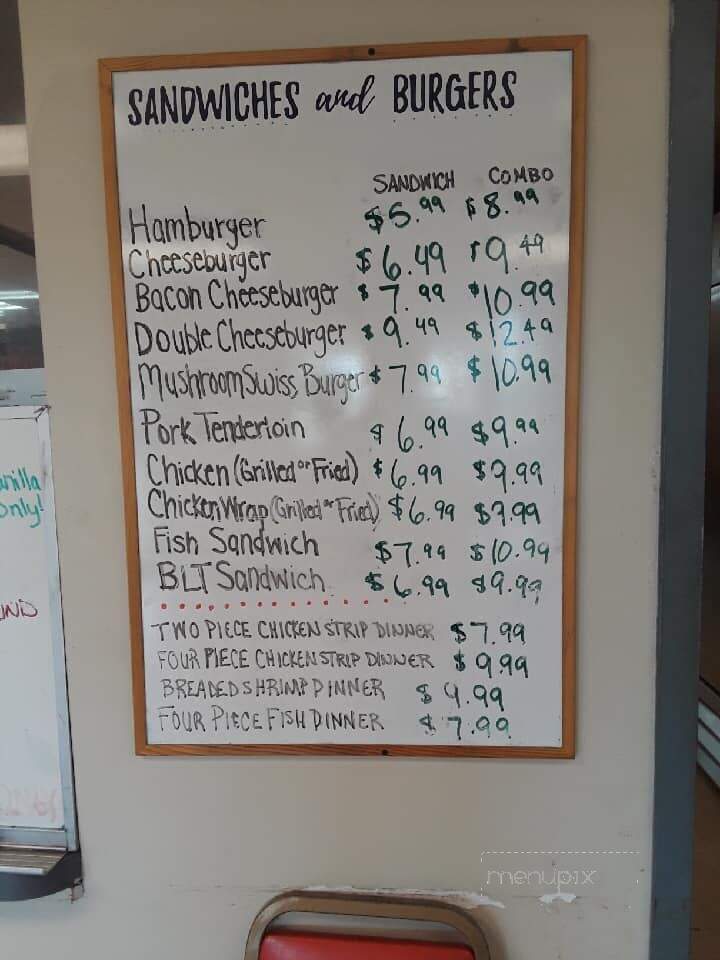 SANDWICHES and BURGERS
SANDWICH COMBO
Hamburger $5.99 $8.99
Cheeseburger $6.49 $9.49
Bacon Cheeseburger $7.99 $10.99
Double Cheeseburger $9.49 $12.49
Mushroom Swiss Burger $7.99 $10.99
Pork Tenderloin $6.99 $9.99
Chicken (Grilled or Fried) $6.99 $9.99
Chicken Wrap (Grilled or Fried) $6.99 $9.99
Fish Sandwich $7.99 $10.99
BLT Sandwich $6.99 $9.99
TWO PIECE CHICKEN STRIP DINNER $7.99
FOUR PIECE CHICKEN STRIP DINNER $9.99
BREADED SHRIMP DINNER $9.99
FOUR PIECE FISH DINNER $7.99
anilla
Only!
menupix